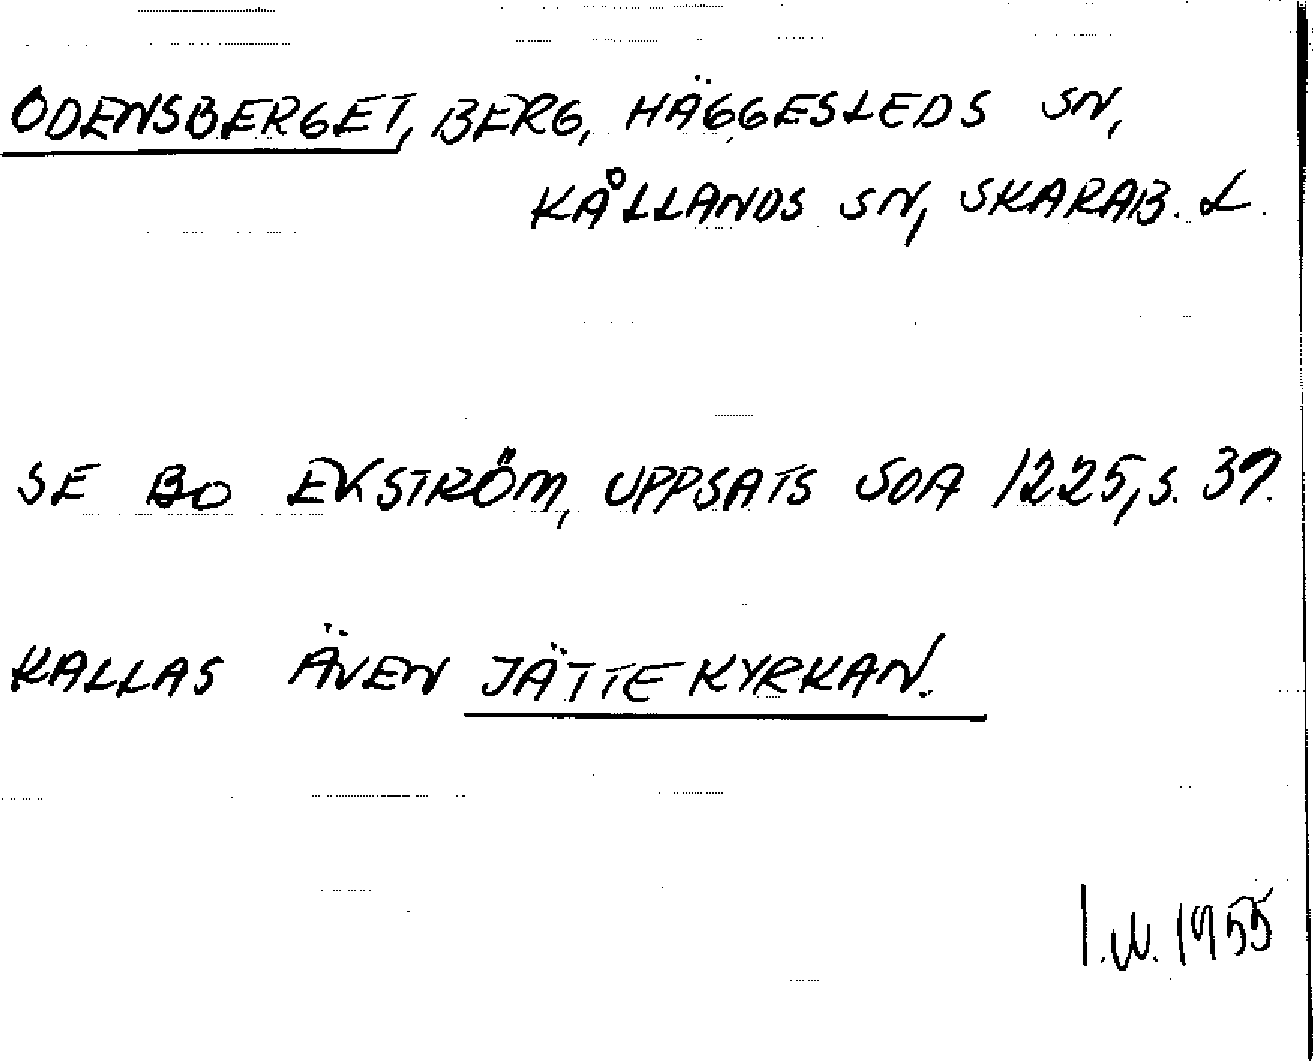 ODENSBERGET, BERG, HÄGGESLEDS SN,
KÅLLANDS SN, SKARAB. L.
SE BO EKSTRÖM, UPPSATS SOA 1225, s. 37.
KALLAS ÄVEN JÄTTEKYRKAN.
1955